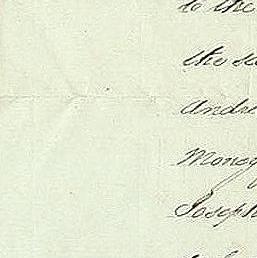 to the
the se
Andre
Monog
Joseph